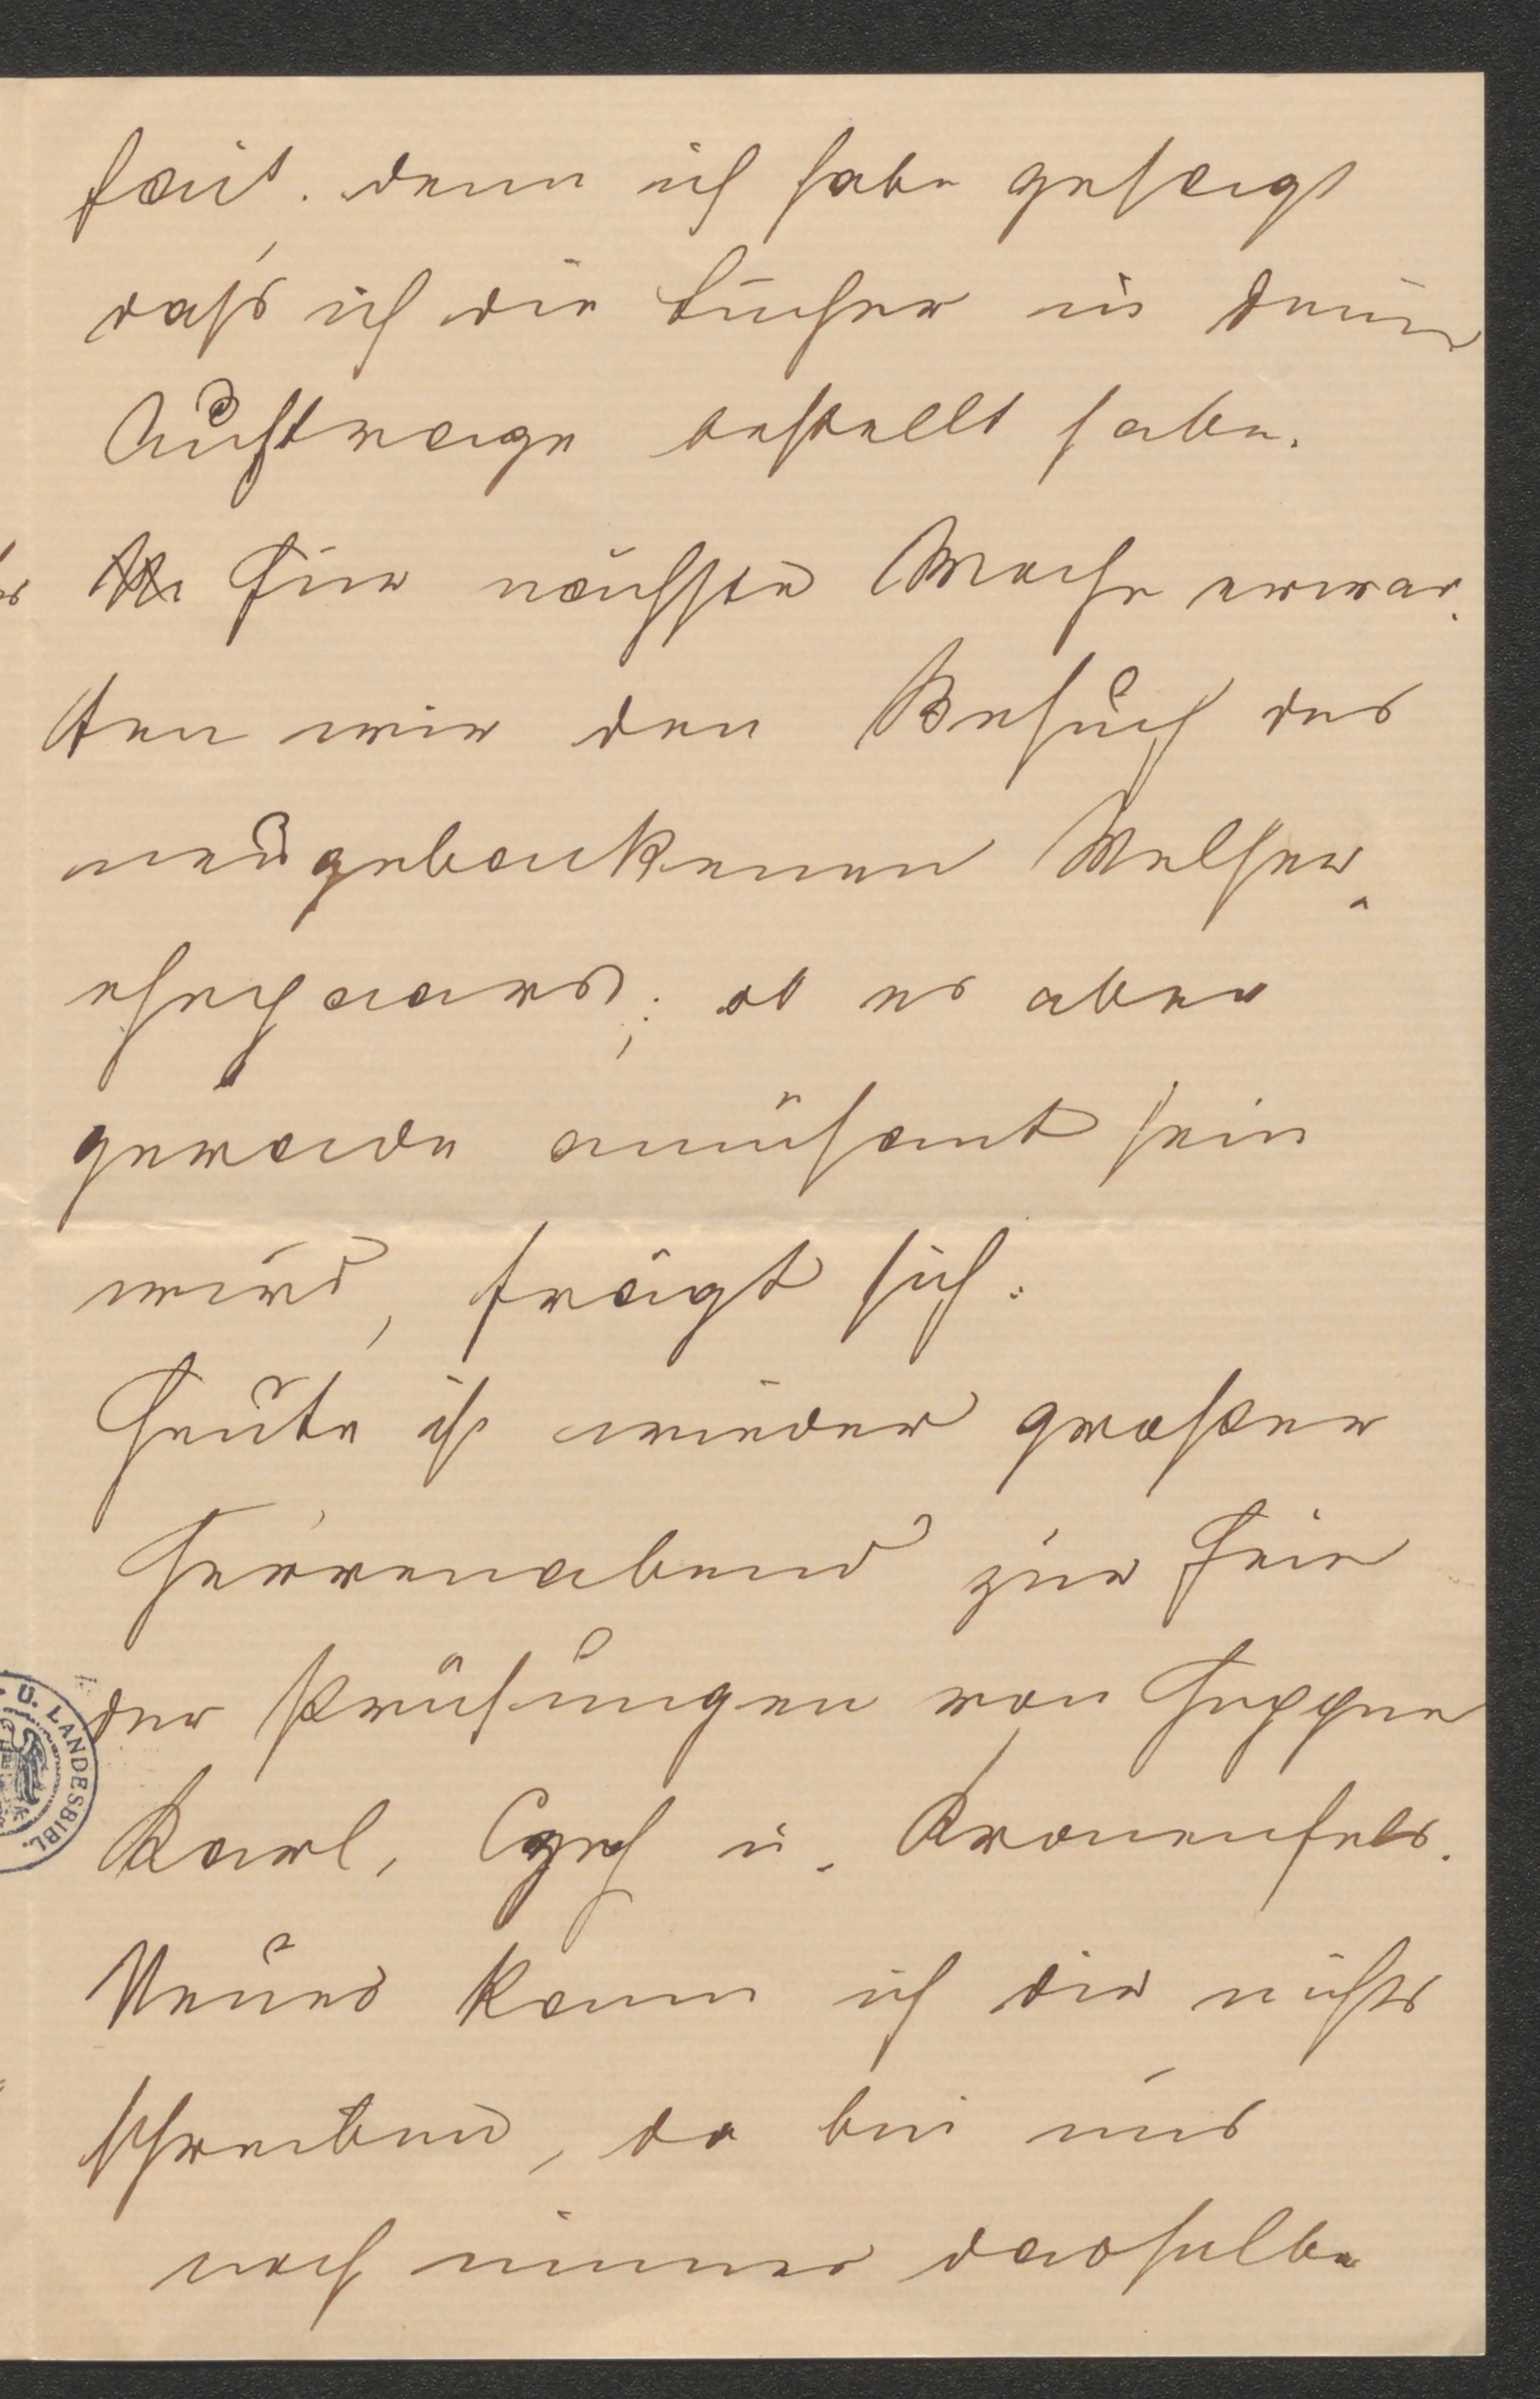 fait. denn ich habe gesagt
daß ich die Bücher in deinem
Auftrage bestellt habe.
Für nächste Woche erwar-
ten wir den Besuch des
neugebackenen Welser-
ehepaares; ob es aber
gerade amüsant sein
wird, frägt sich.
Heute ist wieder großer
Herrenabend zur Feier
der Prüfungen von Hepper
Karl, u. Kronenfels.
Neues kann ich dir nichts
schreiben, da bei uns
noch immer dasselbe
U. LANDESBIBL.